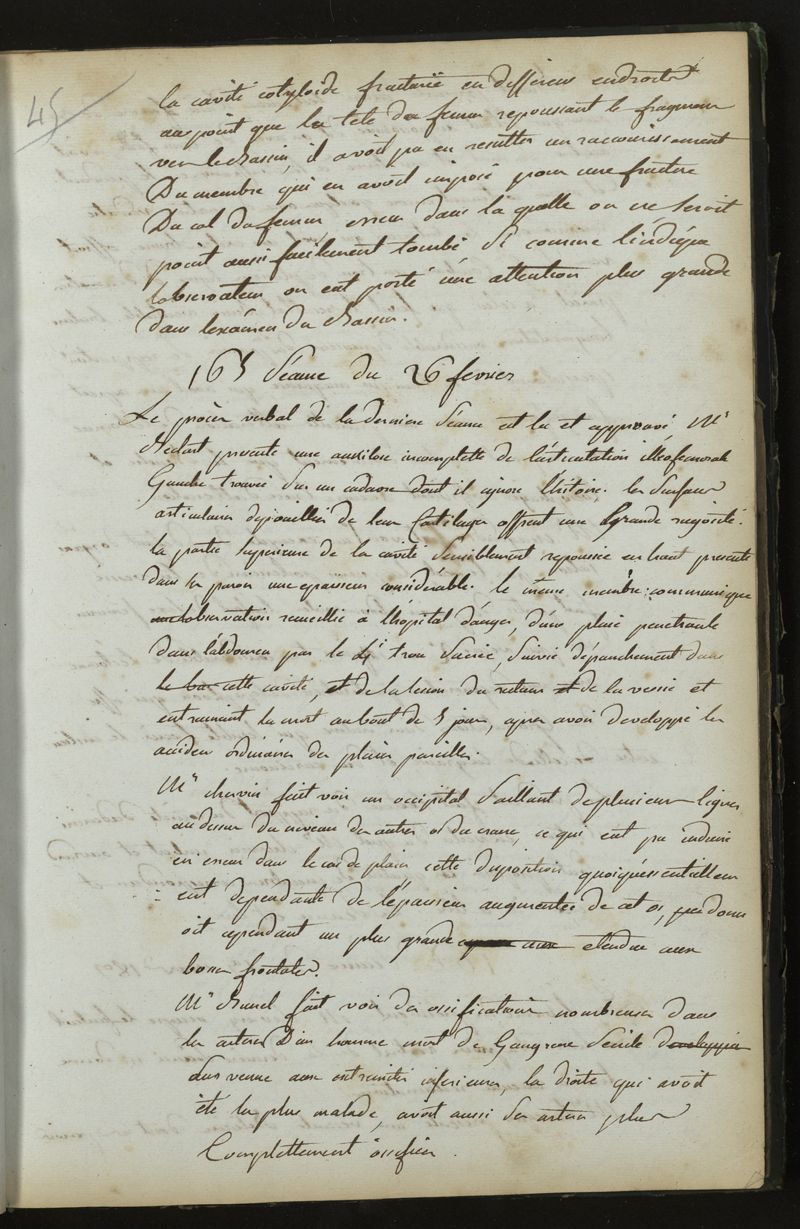 45
la cavité cotyloïde fracturée en différens endroits
au point que la tete du femur repoussant le fragment
vers le bassin, il avoit pu en resulter un raccourcissement
Du membre qui en avoit imposé pour une fracture
Du col du femur erreur dans la quelle on ne seroit
point aussi facilement tombé si comme l'indique
l'observateur on eut porté une attention plus grande
dans l'examen du Bassin.
165 Séance du 26 fevrier
Le procès verbal de la derniere Séance est lu et approuvé Mr
presente une anxilose incomplette de l'articulation illéofemorale
Gauche trouvée sur un cadavre dont il ignore l'histoire. les surfaces
articulaires depouillées de leur Cartilages offrent une Grande rugosité.
la partie Superieure de la cavité sensiblement repoussée en haut presente
dans sa paroi une epaisseur considérable. le même membre communique
l'observation recueillie à l'hôpital d'angers, d'une plaie penetrante
dans l'abdomen par le 4e trou sacré, suivie d'épanchement dans
le bas cette cavité, et de la lesion du rectum et de la vessie et
entrainant la mort au bout de 5 jours, apres avoir developpé les
accidens ordinaires des plaies pareilles.
Mr chervin fait voir un occipital saillant de plusieurs lignes
au dessus du niveau des autres os du crane, ce qui eut pu induire
en erreur dans le cas de plaies cette disposition quoiqu'essentiellem
ent dependante de l'épaisseur augmentée de cet os,
oit cependant un plus grande etendue aux
bosses frontales.
Mr Brunel fait voir des ossifications nombreuses dans
les arteres D'un homme mort de Gangrene Sénile developpée
survenue aux extremités inferieures, la droite qui avoit
été la plus malade, avoit aussi ses arteres plus
Complettement ossifiées.